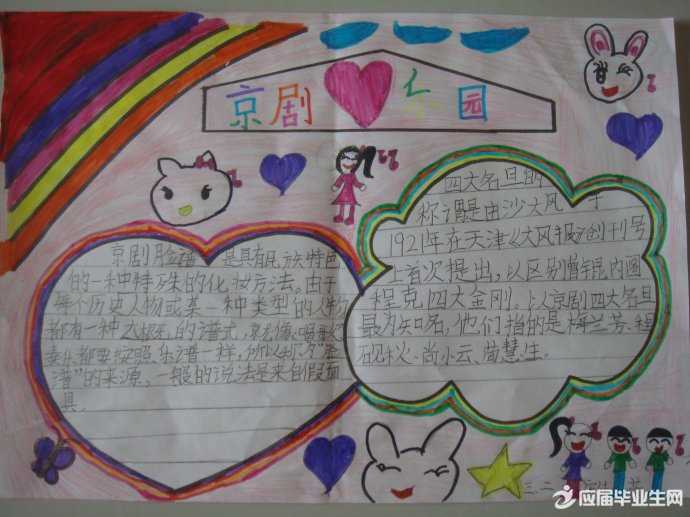 京剧乐园
京剧脸谱 是具有民族特色
的一种特殊的化妆方法。由于
每个历史人物或某一种类型的人物
都有一种大概的谱式，就像唱歌
奏乐都要按照乐谱一样，所以称为“脸
谱”的来源，一般的说法是来自假面
具
四大名旦的
称谓是由沙大风 于
1921年在天津《大风报》创刊号
上首次提出，以区别曾锟内阁
程克四大金刚。以京剧四大名旦
最为知名，他们指的是梅兰芳、程
砚秋、尚小云、荀慧生。
三二
应届毕业生网